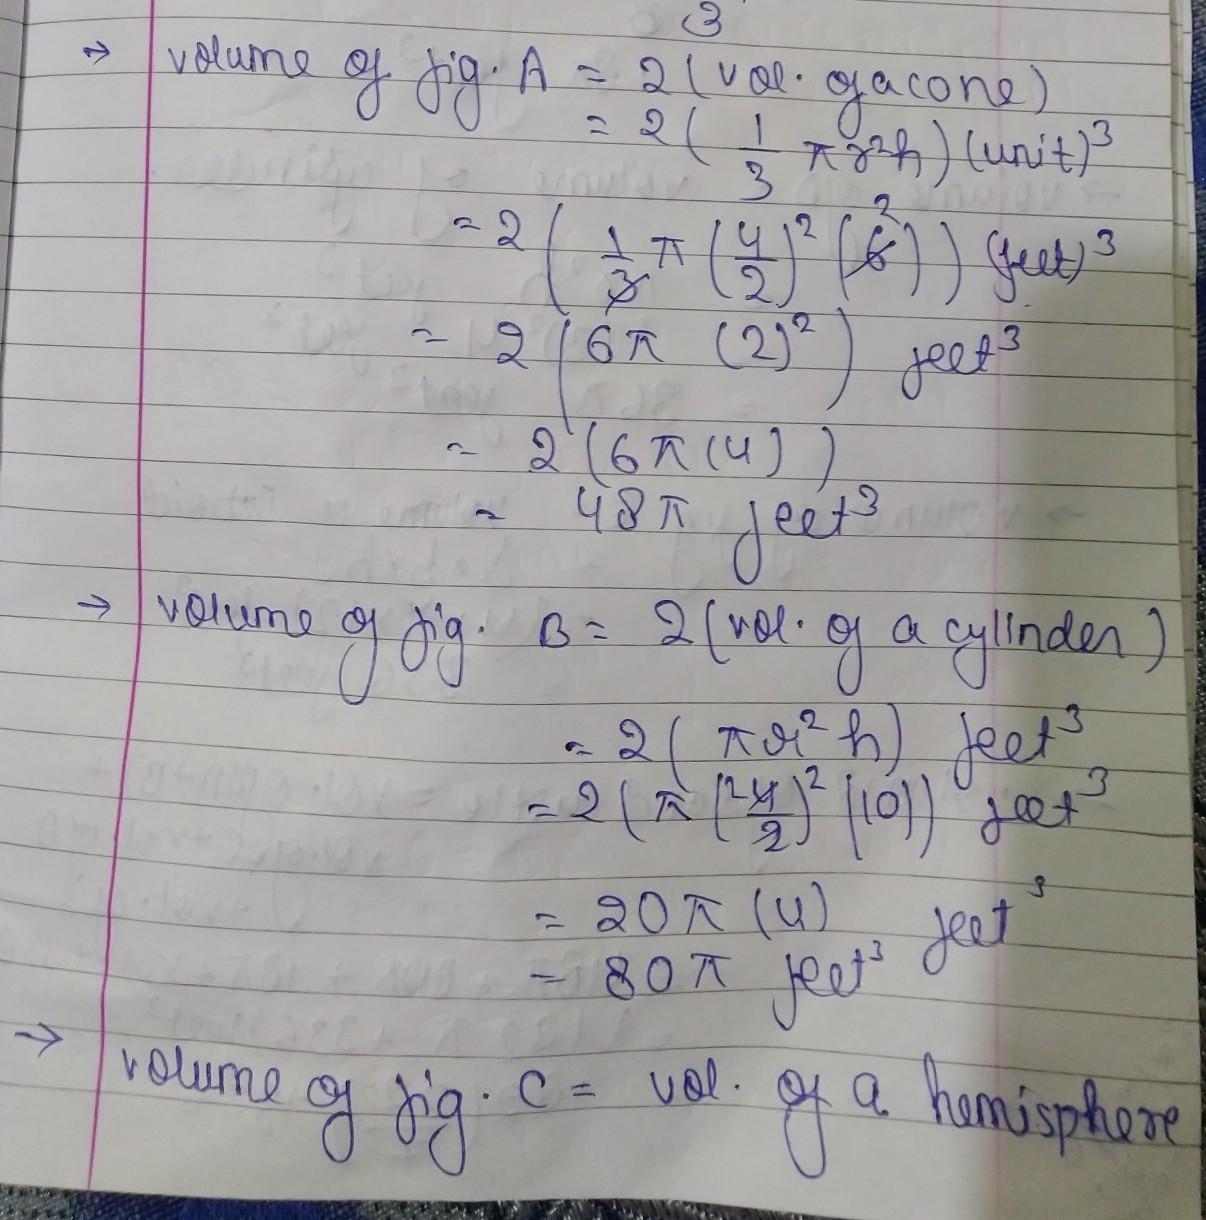 3
→ volume of fig. A = 2 (vol. of a cone)
= 2 ( 1/3 πr²h ) (unit)³
= 2 ( 1/3 π (4/2)² (6) ) (feet)³ 2
= 2 ( 6π (2)² ) feet³
= 2 ( 6π (4) )
= 48π feet³
→ volume of fig. B = 2 (vol. of a cylinder)
= 2 ( πr²h ) feet³
= 2 ( π (2 4/2)² (10) ) feet³
= 20π (4) feet³
= 80π feet³
→ volume of fig. C = vol. of a hemisphere